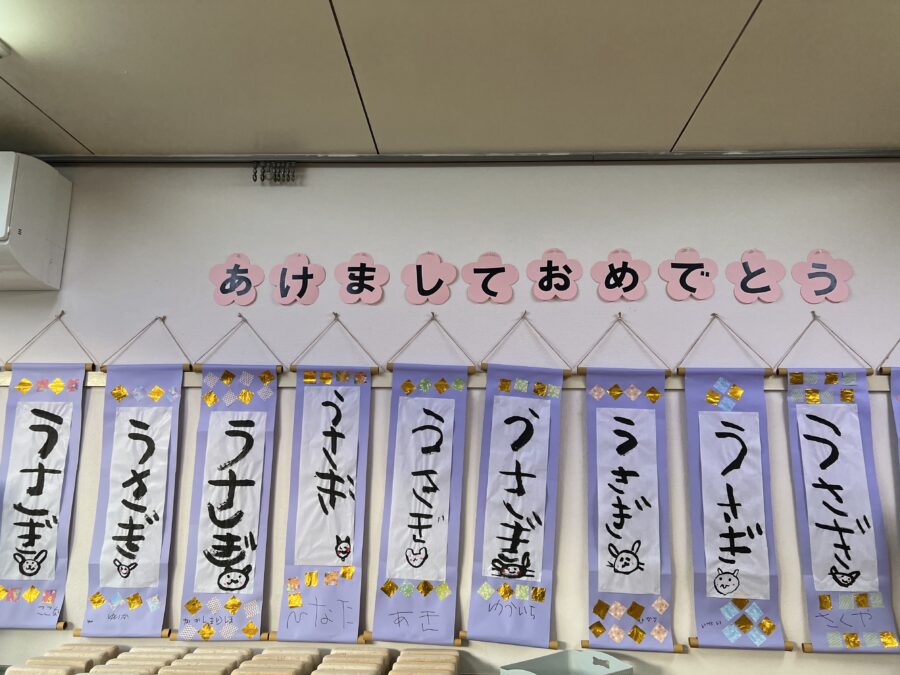 あけましておめでとう
うさぎ
うさぎ
うさぎ
うさぎ
うさぎ
うさぎ
うさぎ
うさぎ
うさぎ
ひなた
あき
ゆういち
さくや